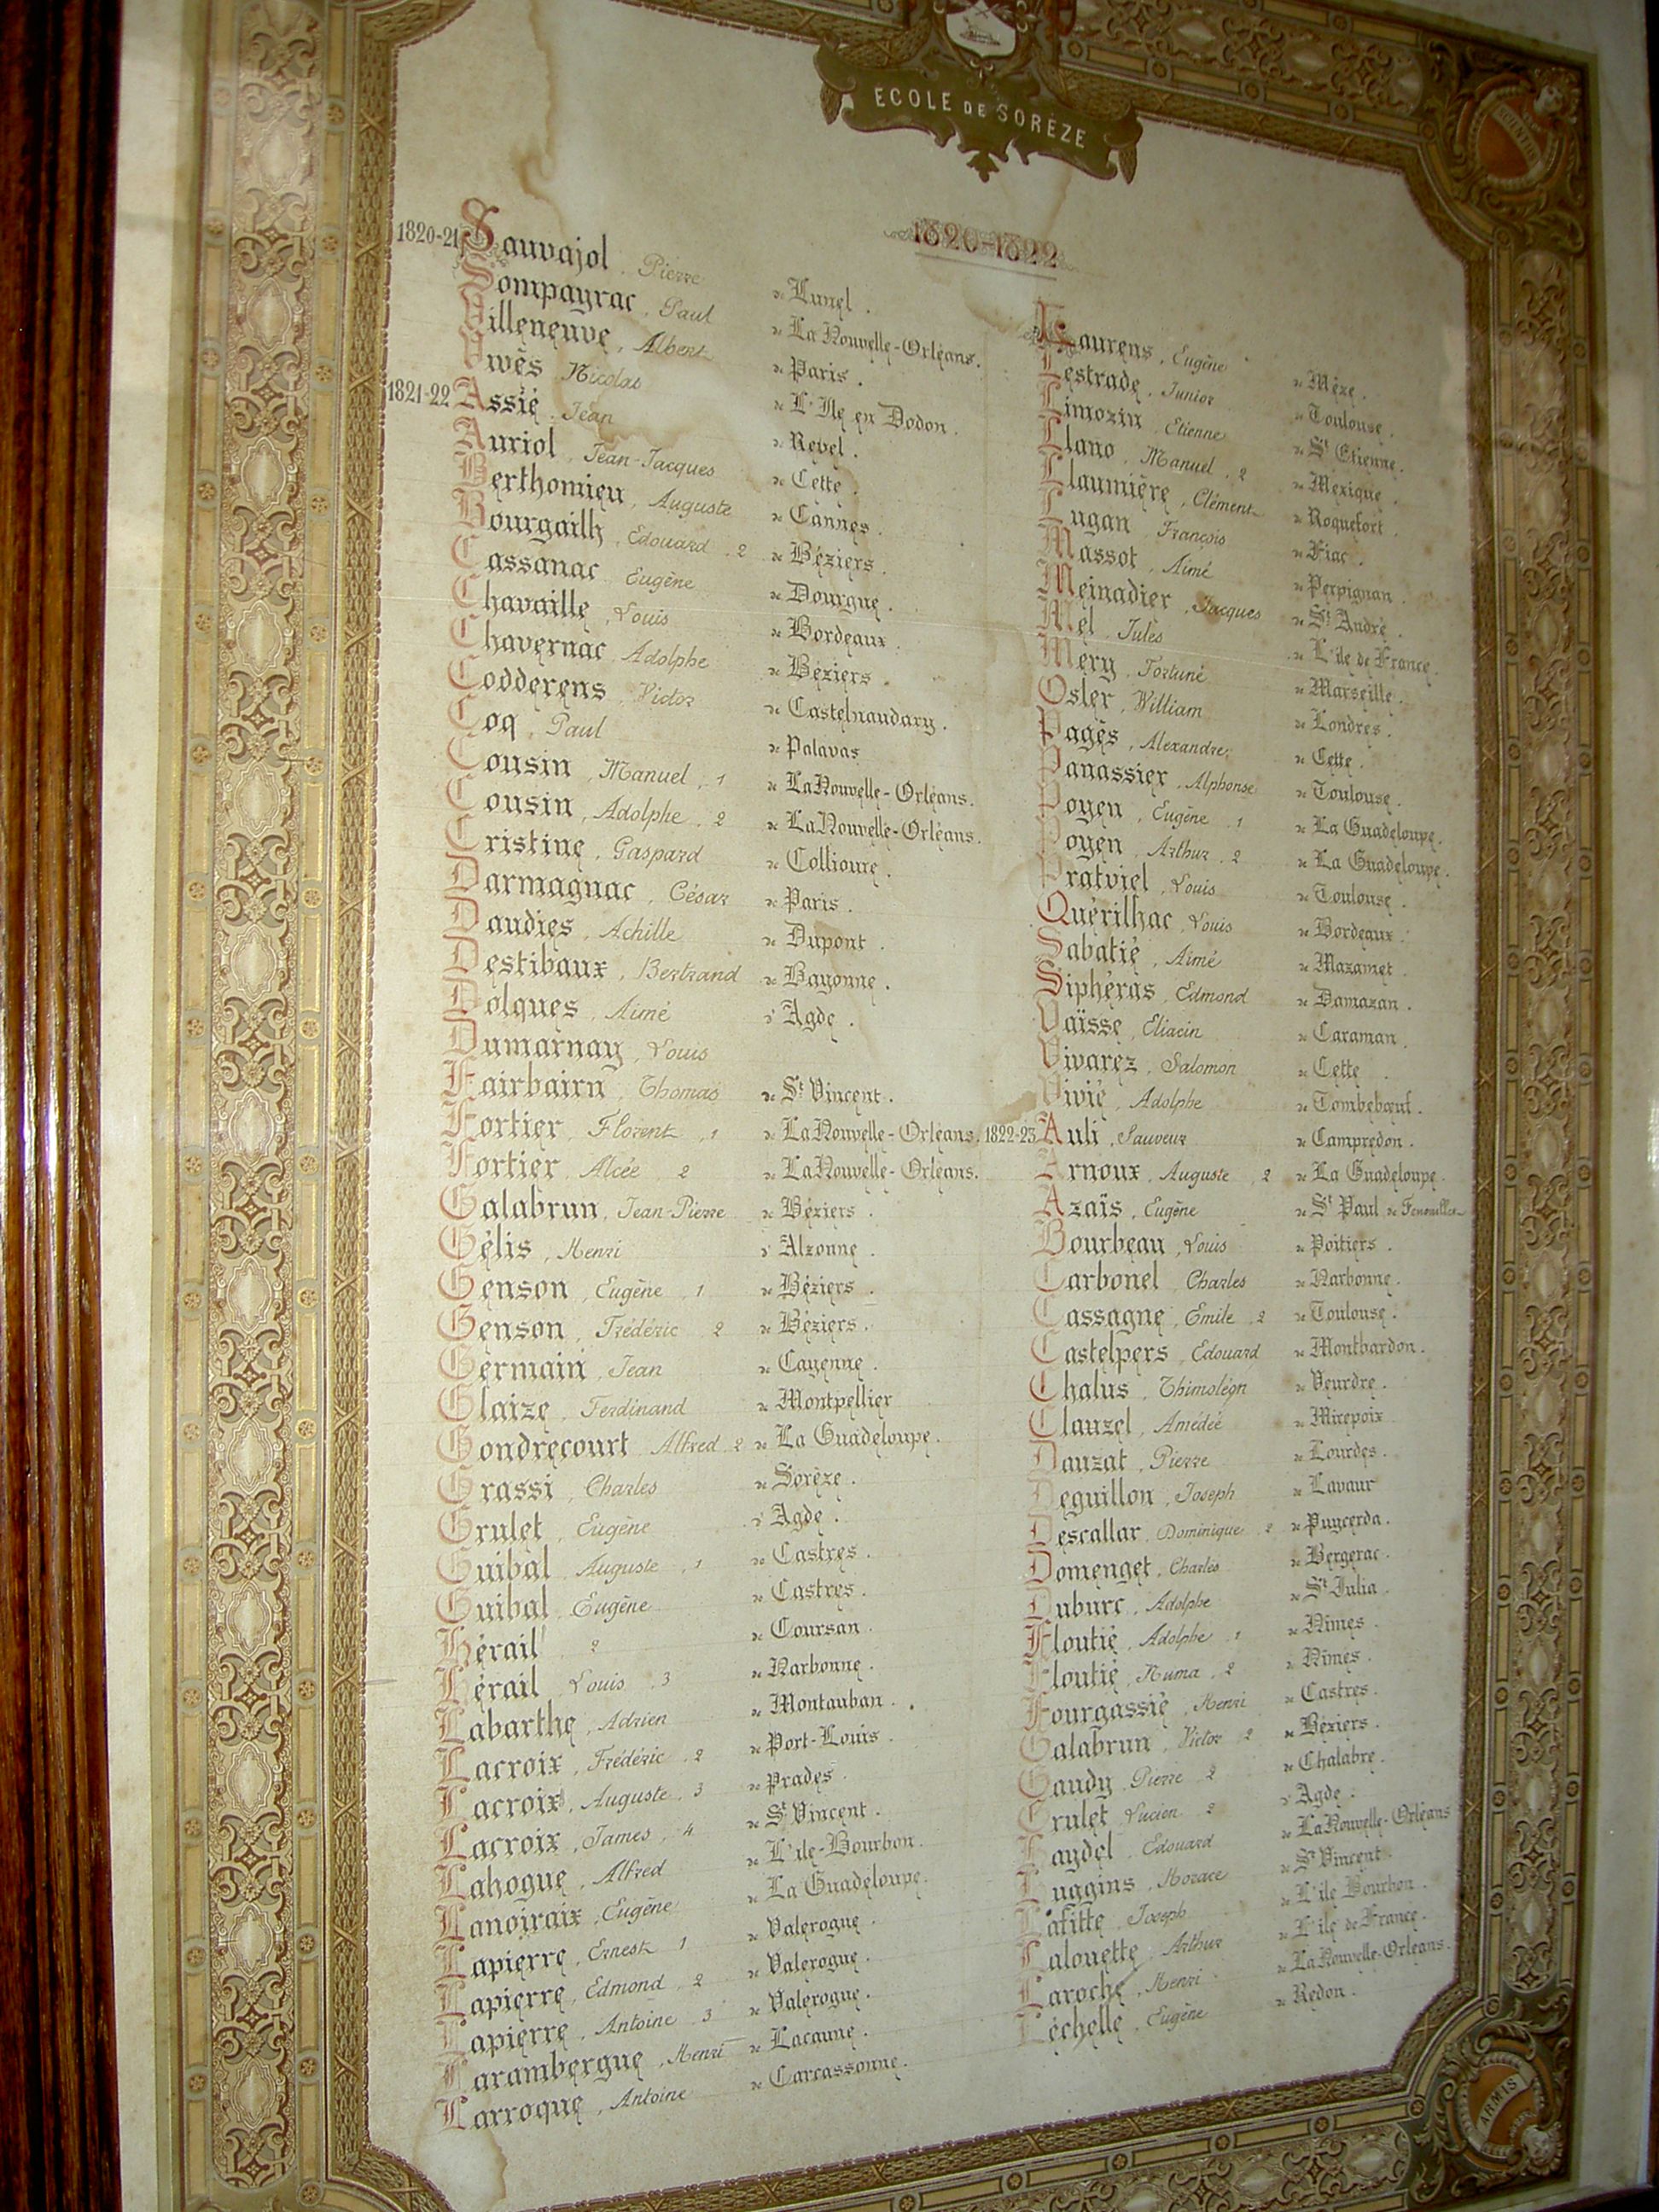 ECOLE DE SORÈZE
SCIENTIA
1820-1822
1820-21 Sauvajol, Pierre de Lunel.
Sompayrac, Paul de La Nouvelle-Orléans.
Villeneuve, Albert de Paris.
Nicolas de L'Ile en Dodon.
1821-22 Assié, Jean de Revel.
Auriol, Jean-Jacques de Cette.
Berthomieu, Auguste de Cannes.
Bourgailh, Edouard, 2 de Béziers.
Cassanac Eugène de Dourgne.
Chavaille, Louis de Bordeaux.
Chavernac, Adolphe de Béziers.
Codderens, Victor de Castelnaudary.
Coq, Paul de Palavas
Cousin, Manuel, 1 de La Nouvelle-Orléans.
Cousin, Adolphe, 2 de La Nouvelle-Orléans.
Cristine, Gaspard de Collioure.
Darmagnac, César de Paris.
Daudies, Achille de Dupont.
Destibaux, Bertrand de Bayonne.
Dolques, Aimé d'Agde.
Dumarnay, Louis
Fairbairn, Thomas de St Vincent.
Fortier, Florent, 1 de La Nouvelle-Orléans.
Fortier, Alcée 2 de La Nouvelle-Orléans.
Galabrun, Jean-Pierre de Béziers.
Gélis, Henri d'Alzonne.
Genson, Eugène, 1 de Béziers.
Genson, Frédéric 2 de Béziers.
Germain, Jean de Cayenne.
Glaize, Ferdinand de Montpellier
Gondrecourt, Alfred 2 de La Guadeloupe.
Grassi, Charles de Sorèze.
Grulet, Eugène d'Agde.
Guibal, Auguste, 1 de Castres.
Guibal, Eugène de Castres.
Hérail 2 de Coursan.
Hérail, Louis, 3 de Narbonne.
Labarthe, Adrien de Montauban.
Lacroix, Frédéric, 2 de Port-Louis.
Lacroix, Auguste, 3 de Prades.
Lacroix, James, 4 de St Vincent.
Lahogue, Alfred de L'ile-Bourbon.
Lanoiraix, Eugène de La Guadeloupe.
Lapierre, Ernest 1 de Valerogue.
Lapierre, Edmond, 2 de Valerogue.
Lapierre, Antoine 3 de Valerogue.
Larambergue, Henri de Lacaune.
Larroque, Antoine de Carcassonne.
Laurens, Eugène de Mèze.
Lestrade, Junior de Toulouse.
Limozin Etienne de St Etienne.
Llano, Manuel, 2 de Mexique.
Llaumière, Clément de Roquefort.
Lugan François de Fiac.
Massot, Aimé de Perpignan.
Meinadier, Jacques de St André.
Mel, Jules de L'ile de France.
Méry, Fortuné de Marseille.
Osler, William de Londres.
Pagès, Alexandre, de Cette.
Panassier, Alphonse de Toulouse.
Poyen, Eugène 1 de La Guadeloupe.
Poyen, Arthur, 2 de La Guadeloupe.
Pratviel, Louis de Toulouse.
Quérilhac, Louis de Bordeaux.
Sabatié, Aimé de Mazamet
Siphéras, Edmond de Damazan.
Vaïsse, Eliacin de Caraman.
Vivarez, Salomon de Cette.
Vivié, Adolphe de Tombebœuf.
1822-23 Auli, Sauveur de Campredon.
Arnoux, Auguste, 2 de La Guadeloupe.
Azaïs, Eugène de St Paul de
Bourbeau, Louis de Poitiers.
Carbonel, Charles de Narbonne.
Cassagne, Emile, 2 de Toulouse.
Castelpers, Edouard de Montbardon.
Chalus, Thimoléon de Veurdre.
Clauzel, Amédée de Mirepoix
Dauzat, Pierre de Lourdes.
Deguillon, Joseph de Lavaur
Descallar, Dominique, 2 de Puycerda.
Domenget, Charles de Bergerac.
Duburc, Adolphe de St Julia.
Floutié, Adolphe, 1 de Nimes.
Floutié, Numa, 2 de Nimes.
Fourgassié, Henri de Castres.
Galabrun, Victor 2 de Béziers.
Gaudy, Pierre 2 de Chalabre.
Grulet, Lucien 2 d'Agde.
Haydel, Edouard de La Nouvelle-Orléans
Huggins, Horace de St Vincent.
Lafitte, Joseph de L'ile Bourbon.
Lalouette, Arthur de L'ile de France.
Laroche, Henri de La Nouvelle-Orléans.
Léchelle, Eugène de Redon.
ARMIS